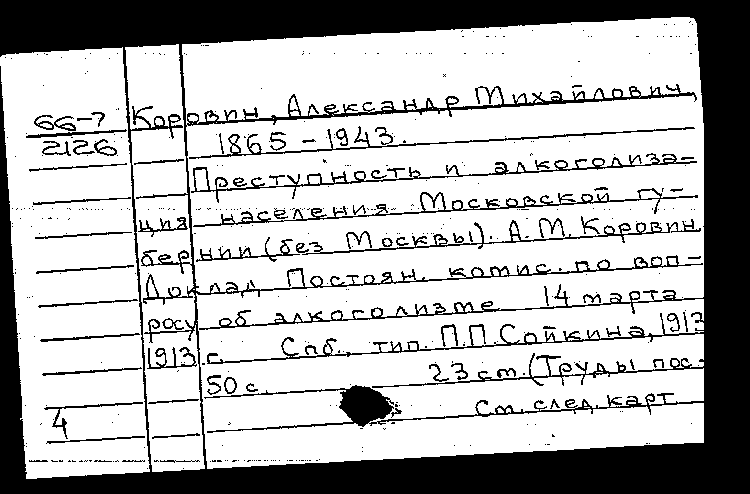 66-7 Коровин, Александр Михайлович,
2126 1865 – 1943.
Преступность и алкоголиза=
ция населения Московской гу-
бернии (без Москвы). А.М. Коровин.
Доклад Постоян. комис. по воп-
росу об алкоголизме 14 марта
1913 г. Спб., тип. П.П. Сойкина, 1913
50 с. 23 см. (Труды пос-
4 См. след. карт